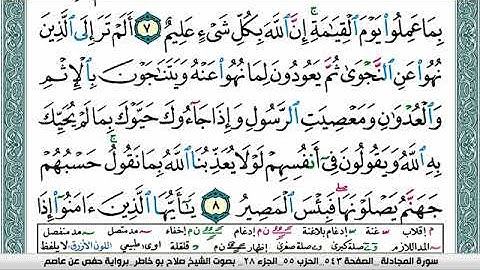 بِمَا عَمِلُوا۟ يَوْمَ ٱلْقِيَـٰمَةِ ۚ إِنَّ ٱللَّهَ بِكُلِّ شَىْءٍ عَلِيمٌ ٧ أَلَمْ تَرَ إِلَى ٱلَّذِينَ
نُهُوا۟ عَنِ ٱلنَّجْوَىٰ ثُمَّ يَعُودُونَ لِمَا نُهُوا۟ عَنْهُ وَيَتَنَـٰجَوْنَ بِٱلْإِثْمِ
وَٱلْعُدْوَٰنِ وَمَعْصِيَتِ ٱلرَّسُولِ وَإِذَا جَآءُوكَ حَيَّوْكَ بِمَا لَمْ يُحَيِّكَ
بِهِ ٱللَّهُ وَيَقُولُونَ فِىٓ أَنفُسِهِمْ لَوْلَا يُعَذِّبُنَا ٱللَّهُ بِمَا نَقُولُ ۚ حَسْبُهُمْ
جَهَنَّمُ يَصْلَوْنَهَا ۖ فَبِئْسَ ٱلْمَصِيرُ ٨ يَـٰٓأَيُّهَا ٱلَّذِينَ ءَامَنُوٓا۟ إِذَا
م اقلاب غنة إدغام بلاغنة إدغام بغنة إخفاء مد متصل مد منفصل
المد اللازم صلة كبرى وصلة صغرى إظهار قلقلة طبيعي اللون الأزرق لا يلفظ
سورة المجادلة _ الصفحة ٥٤٣_ الحزب ٥٥ _ الجزء ٢٨ _ بصوت الشيخ صلاح بو خاطر _ برواية حفص عن عاصم